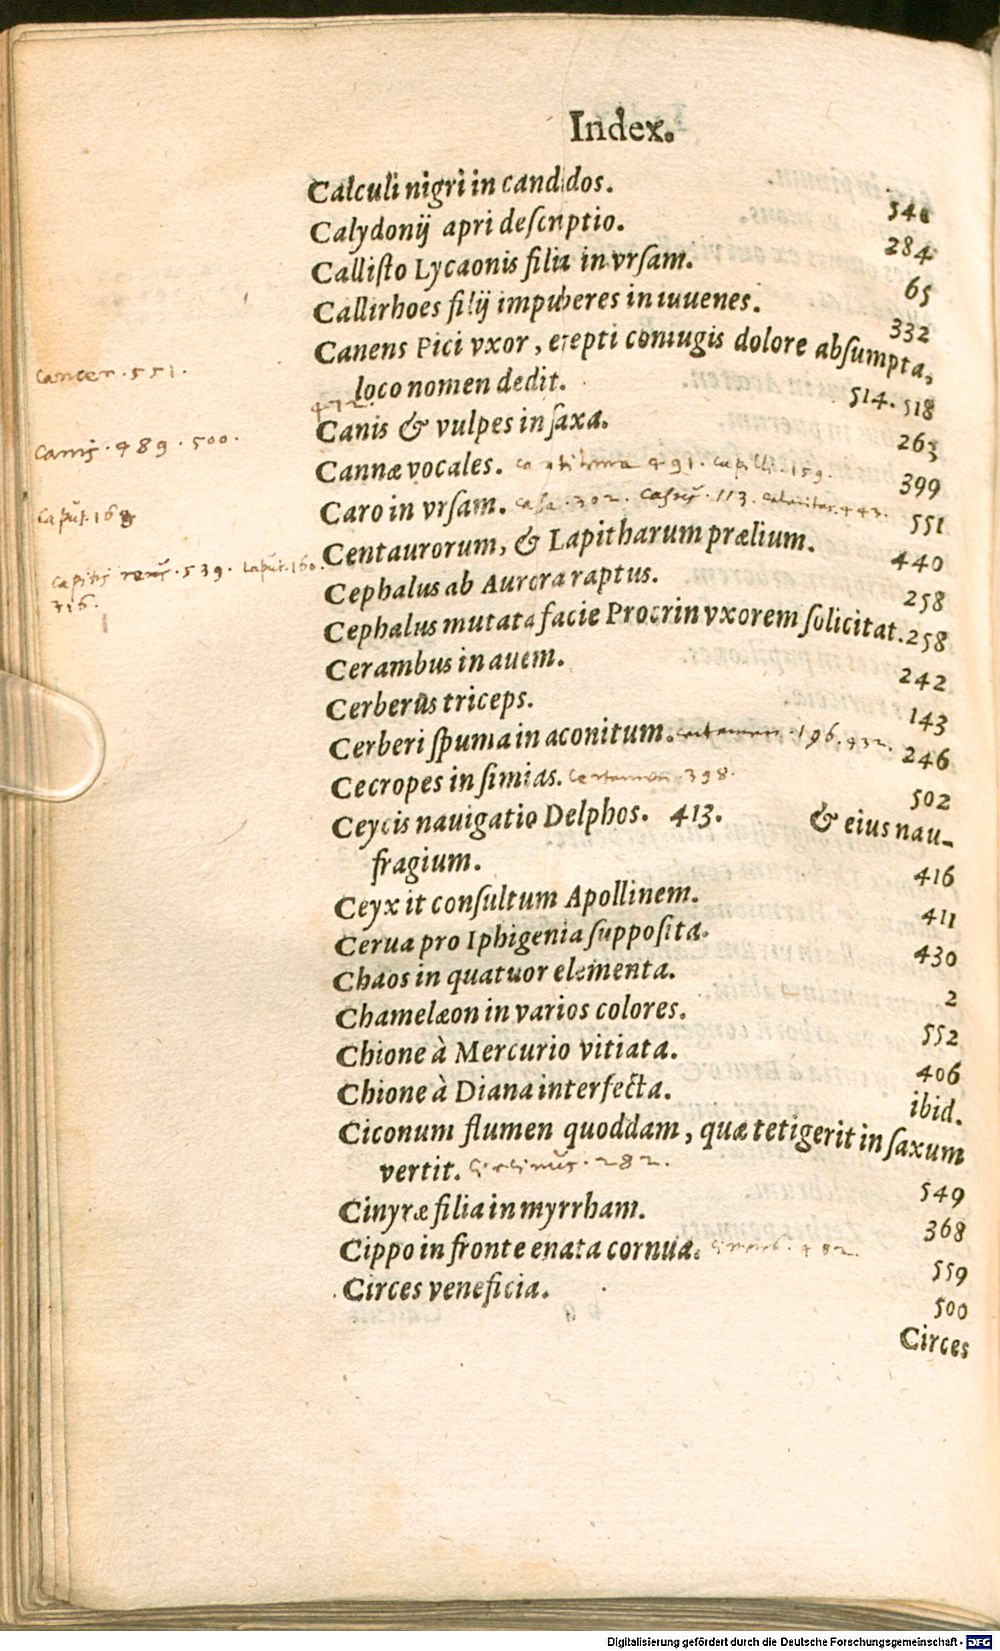 Index.
Calculi nigri in candidos. 541
Calydonij apri deſcriptio. 284
Calliſto Lycaonis filia in vrſam. 65
Callirhoes filij impuberes in iuuenes. 332
Canens Pici vxor, erepti coniugis dolore abſumpta,
loco nomen dedit. 514. 518
cancer. 551.
472
Canis & vulpes in ſaxa. 263
canis. 489. 500.
Cannæ vocales. 491. capilli. 159. 399
Caro in vrſam. caſa. 302. 113. 443. 551
caput. 168
Centaurorum, & Lapitharum prælium. 440
capitis 539. caput. 160.
316.
Cephalus ab Aurora raptus. 258
Cephalus mutata facie Procrin vxorem ſolicitat. 258
Cerambus in auem. 242
Cerberus triceps. 143
Cerberi ſpuma in aconitum. certamen. 196. 432. 246
Cecropes in ſimias. certamen. 398. 502
Ceycis nauigatio Delphos. 413. & eius nau-
fragium. 416
Ceyx it conſultum Apollinem. 411
Cerua pro Iphigenia ſuppoſita. 430
Chaos in quatuor elementa. 2
Chamelæon in varios colores. 552
Chione à Mercurio vitiata. 406
Chione à Diana interfecta. ibid.
Ciconum flumen quoddam, quæ tetigerit in ſaxum
vertit. 282. 549
Cinyræ filia in myrrham. 368
Cippo in fronte enata cornua. 482. 559
Circes veneficia. 500
Circes
Digitalisierung gefördert durch die Deutsche Forschungsgemeinschaft - DFG